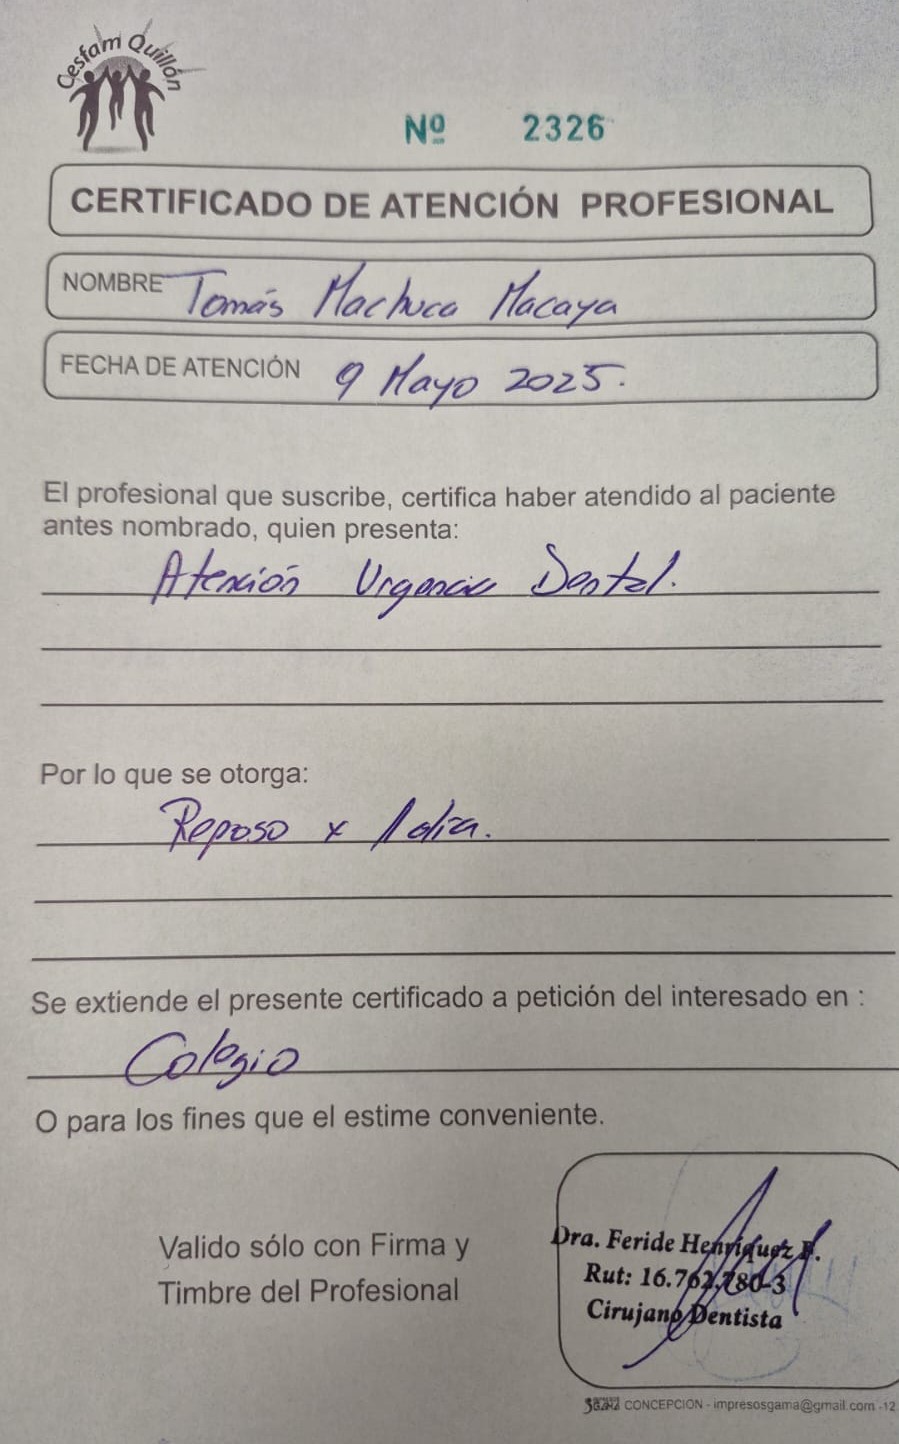 Cesfam Quillón
Nº 2326
CERTIFICADO DE ATENCIÓN PROFESIONAL
NOMBRE Tomás Machuca Macaya
FECHA DE ATENCIÓN 9 Mayo 2025.
El profesional que suscribe, certifica haber atendido al paciente
antes nombrado, quien presenta:
Atención Urgencia Dental.
Por lo que se otorga:
Reposo x 1 día.
Se extiende el presente certificado a petición del interesado en :
Colegio
O para los fines que el estime conveniente.
Valido sólo con Firma y
Timbre del Profesional
Dra. Feride Henríquez
Rut: 16.762.780-3
Cirujano Dentista
CONCEPCION - impresosgama@gmail.com -12